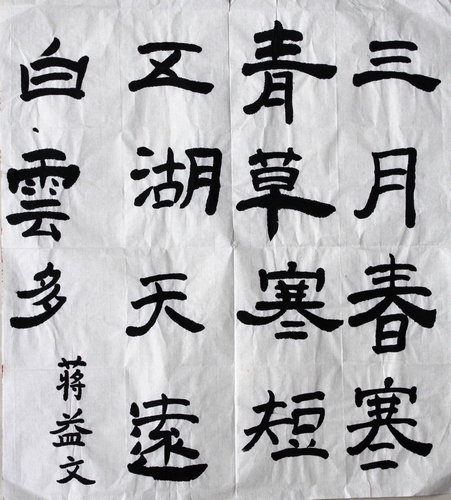 三月春寒
青草寒短
五湖天遠
白雲多
蔣益文